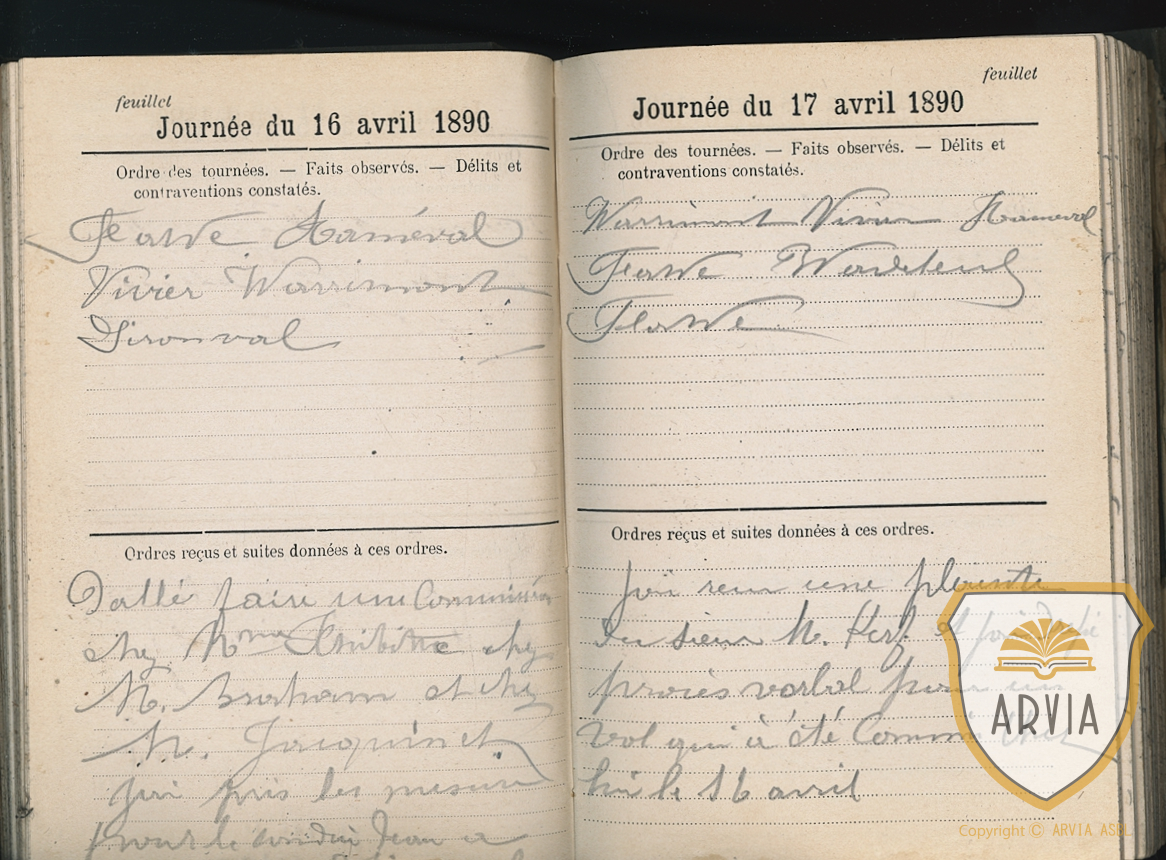 feuillet
Journée du 16 avril 1890
Ordre des tournées. — Faits observés. — Délits et
contraventions constatés.
Flawe Haméval
Vivier Warrimont
Gironval
Ordres reçus et suites données à ces ordres.
D'allé faire une Commission
chez Mme chez
M. Braham et chez
M. Jacquinet
J'ai pris les mesure
pour le
feuillet
Journée du 17 avril 1890
Ordre des tournées. — Faits observés. — Délits et
contraventions constatés.
Warrimont Vivier Hameval
Flawe
Flawe
Ordres reçus et suites données à ces ordres.
J'ai reçu une plainte
du sieur M. Kerf et
procès verbal pour un
vol qui à été Commi chez
lui le 16 avril
ARVIA
Copyright © ARVIA ASBL